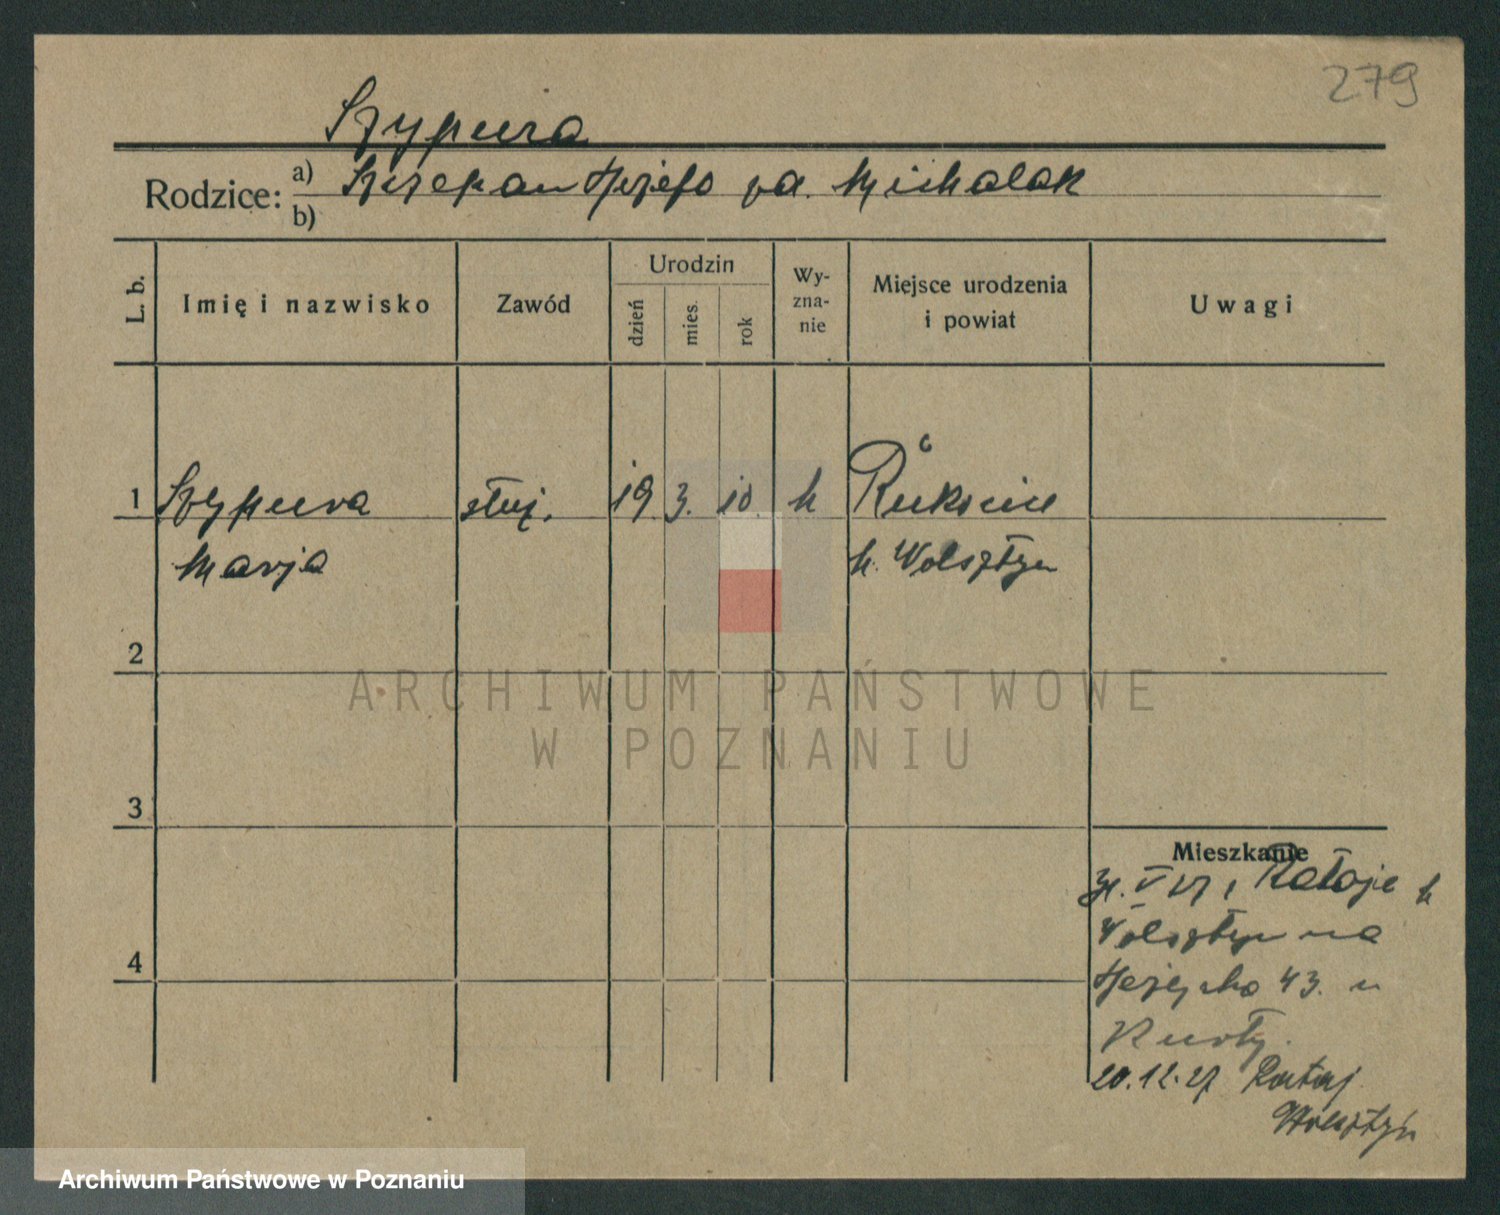 279
Szypura
Rodzice: a) Szczepan Hezefo za. Michalak
b)
L. b. Imię i nazwisko Zawód Urodzin dzień mies. rok Wyznanie Miejsce urodzenia i powiat Uwagi
1 Szypura służ. 19. 3. 10. k
Marja k. Wolsztyn
2
ARCHIWUM PAŃSTWOWE
W POZNANIU
3
Mieszkanie
27, Rataje k
Wolsztyn na
43. u
4
20.12.27 Rataj
Wolsztyn
Archiwum Państwowe w Poznaniu